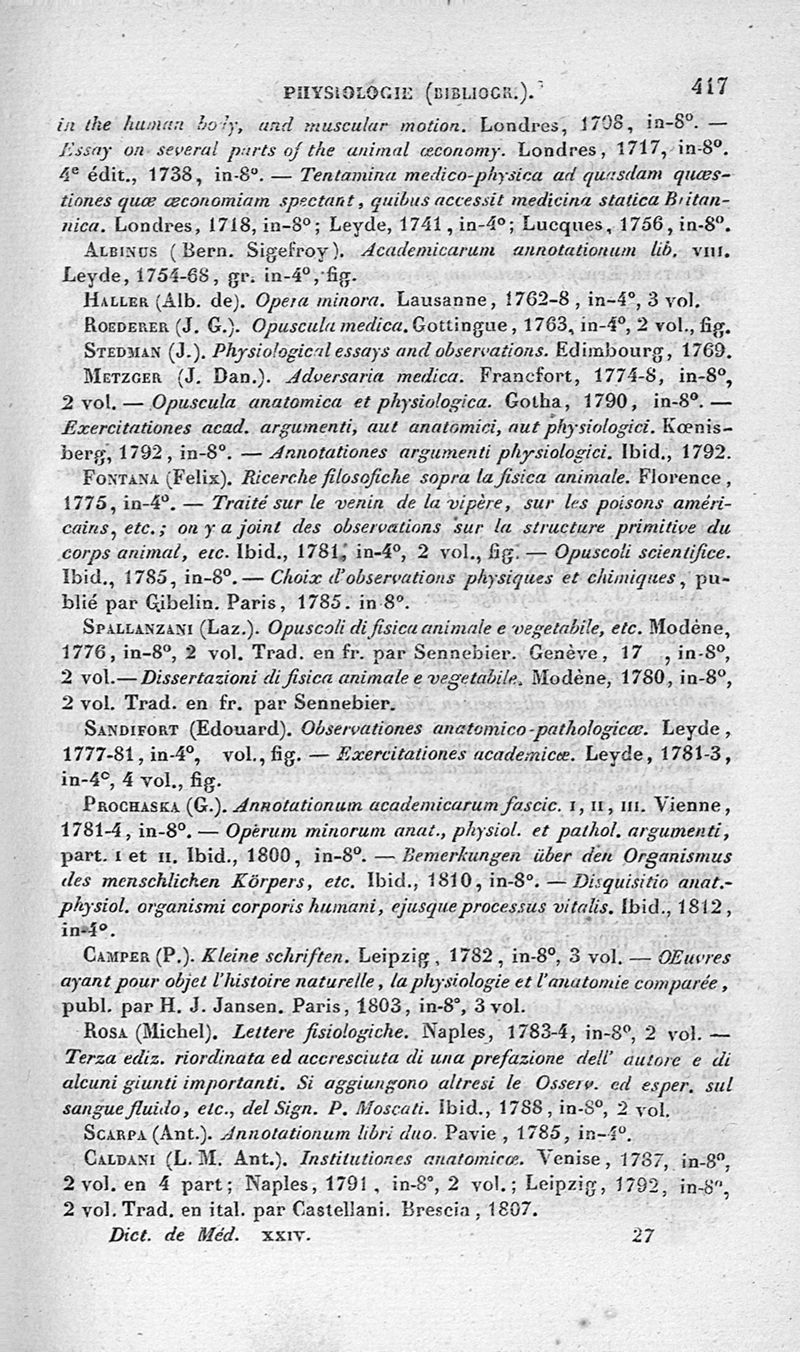 PHYSIOLOGIE (BIBLIOGR.). 417
in the human body, and muscular motion. Londres, 1708, in-8°. —
Essay on several parts of the animal œconomy. Londres, 1717, in-8°.
4e édit., 1738, in-8°. — Tentamina medico-physica ad quasdam quæs-
tiones quæ œconomiam spectant, quibus accessit medicina statica Britan-
nica. Londres, 1718, in-8°; Leyde, 1741, in-4°; Lucques, 1756, in-8°.
ALBINUS (Bern. Sigefroy). Academicarum annotationum lib. VIII.
Leyde, 1754-68, gr. in-4°, fig.
HALLER (Alb. de). Opera minora. Lausanne, 1762-8, in-4°, 3 vol.
ROEDERER (J. G.). Opuscula medica. Gottingue, 1763, in-4°, 2 vol., fig.
STEDMAN (J.). Physiological essays and observations. Edimbourg, 1769.
METZGER (J. Dan.). Adversaria medica. Francfort, 1774-8, in-8°,
2 vol. — Opuscula anatomica et physiologica. Gotha, 1790, in-8°. —
Exercitationes acad. argumenti, aut anatomici, aut physiologici. Kœnis-
berg, 1792, in-8°. — Annotationes argumenti physiologici. Ibid., 1792.
FONTANA (Felix). Ricerche filosofiche sopra la fisica animale. Florence,
1775, in-4°. — Traité sur le venin de la vipère, sur les poisons améri-
cains, etc.; on y a joint des observations sur la structure primitive du
corps animal, etc. Ibid., 1781, in-4°, 2 vol., fig. — Opuscoli scientifice.
Ibid., 1785, in-8°. — Choix d'observations physiques et chimiques, pu-
blié par Gibelin. Paris, 1785. in-8°.
SPALLANZANI (Laz.). Opuscoli di fisica animale e vegetabile, etc. Modène,
1776, in-8°, 2 vol. Trad. en fr. par Sennebier. Genève, 17 , in-8°,
2 vol. — Dissertazioni di fisica animale e vegetabile. Modène, 1780, in-8°,
2 vol. Trad. en fr. par Sennebier.
SANDIFORT (Edouard). Observationes anatomico-pathologicæ. Leyde,
1777-81, in-4°, vol., fig. — Exercitationes academicæ. Leyde, 1781-3,
in-4°, 4 vol., fig.
PROCHASKA (G.). Annotationum academicarum fascic. I, II, III. Vienne,
1781-4, in-8°. — Opèrum minorum anat., physiol. et pathol. argumenti,
part. I et II. Ibid., 1800, in-8°. — Bemerkungen über den Organismus
des menschlichen Körpers, etc. Ibid., 1810, in-8°. — Disquisitio anat.-
physiol. organismi corporis humani, ejusque processus vitalis. Ibid., 1812,
in-4°.
CAMPER (P.). Kleine schriften. Leipzig, 1782, in-8°, 3 vol. — OEuvres
ayant pour objet l'histoire naturelle, la physiologie et l'anatomie comparée,
publ. par H. J. Jansen. Paris, 1803, in-8°, 3 vol.
ROSA (Michel). Lettere fisiologiche. Naples, 1783-4, in-8°, 2 vol. —
Terza ediz. riordinata ed accresciuta di una prefazione dell' autore e di
alcuni giunti importanti. Si aggiungono altresi le Osserv. ed esper. sul
sangue fluido, etc., del Sign. P. Moscati. Ibid., 1788, in-8°, 2 vol.
SCARPA (Ant.). Annotationum libri duo. Pavie, 1785, in-4°.
CALDANI (L. M. Ant.). Institutiones anatomicæ. Venise, 1787, in-8°,
2 vol. en 4 part; Naples, 1791, in-8°, 2 vol.; Leipzig, 1792, in-8°,
2 vol. Trad. en ital. par Castellani. Brescia, 1807.
Dict. de Méd. XXIV. 27